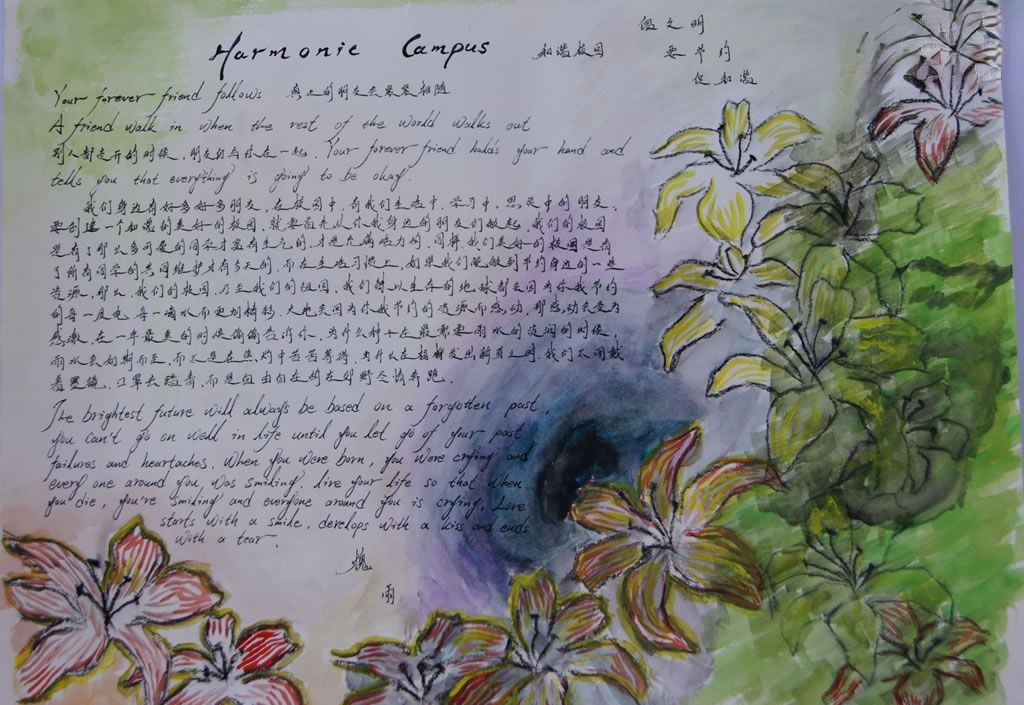 Harmonic Campus
和谐校园
倡文明
要节约
促和谐
Your forever friend follows 真正的朋友会紧紧相随
A friend walk in when the rest of the world walks out
别人都走开的时候，朋友仍与你在一起．Your forever friend holds your hand and
tells you that everything is going to be okay.
我们身边有好多好多朋友，在校园中，有我们生活中，学习中，思及中的朋友，
要创造一个和谐的美好的校园，就要首先从你我身边的朋友们做起，我们的校园
是有了那么多可爱的同学才富有生气的，才是充满活力的，同样，我们美好的校园是有
了所有同学的共同维护才有今天的，而在生活习惯上，如果我们能做到节约身边的一些
资源，那么，我们的校园，乃至我们的祖国，我们赖以生存的地球都会因为你我节约
的每一度电，每一滴水而更加精彩，大地会因为你我节约的资源而感动，那感动会变为
感激，在一年最美的时候偷偷告诉你，为什么种子在最需要雨水的滋润的时候，
雨水会如期而至，而不是在焦灼中苦苦等待，为什么在杨柳发出新芽之时，我们不用戴
着墨镜，口罩去踏青，而是自由自在的在郊野尽情奔跑．
The brightest future will always be based on a forgotten past,
you can't go on well in life until you let go of your past
failures and heartaches. When you were born, you were crying and
every one around you was smiling. live your life so that when
you die, you're smiling and everyone around you is crying. Love
starts with a smile, develops with a kiss and ends
with a tear.
雨